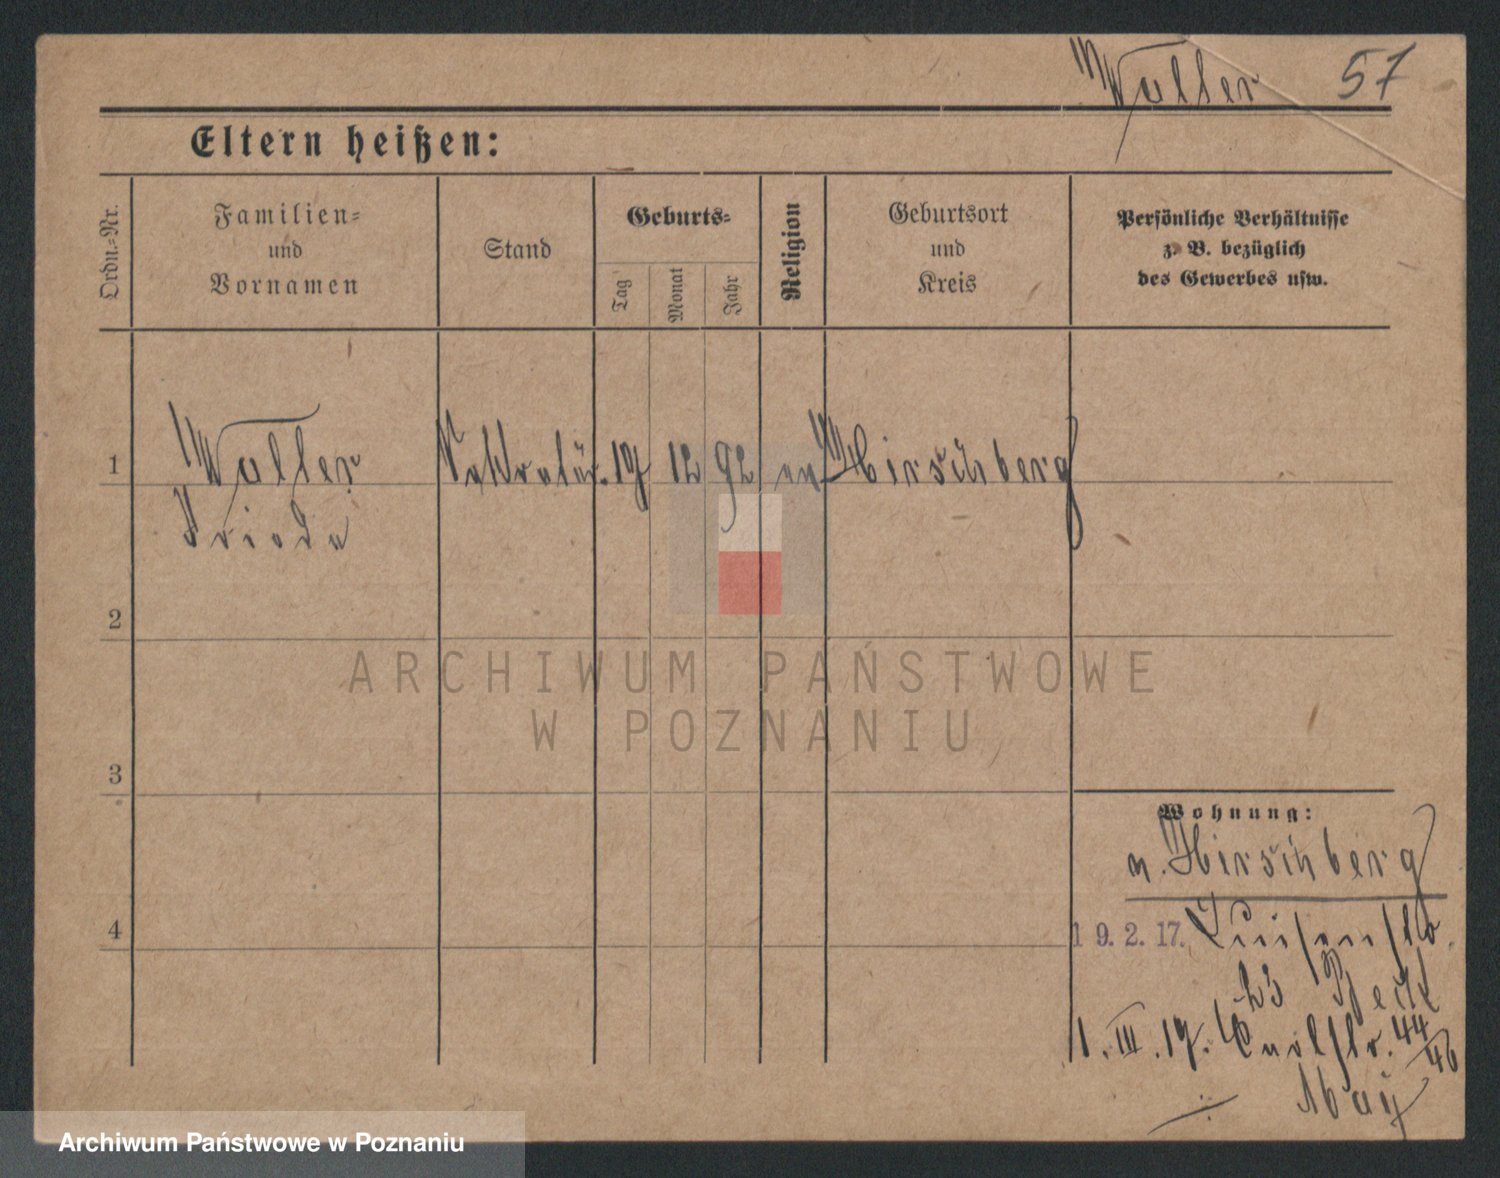 Walter 57
Eltern heißen:
Ordn.-Nr.
Familien-
und
Vornamen
Stand
Geburts-
Tag
Monat
Jahr
Religion
Geburtsort
und
Kreis
Persönliche Verhältnisse
z. B. bezüglich
des Gewerbes usw.
1 12 92 Hirschberg
Frieda
2
3
4
Wohnung:
n. Hirschberg
19. 2. 17. Luisenstr.
23
1. III. 17. 44/46
ARCHIWUM PAŃSTWOWE
W POZNANIU
Archiwum Państwowe w Poznaniu